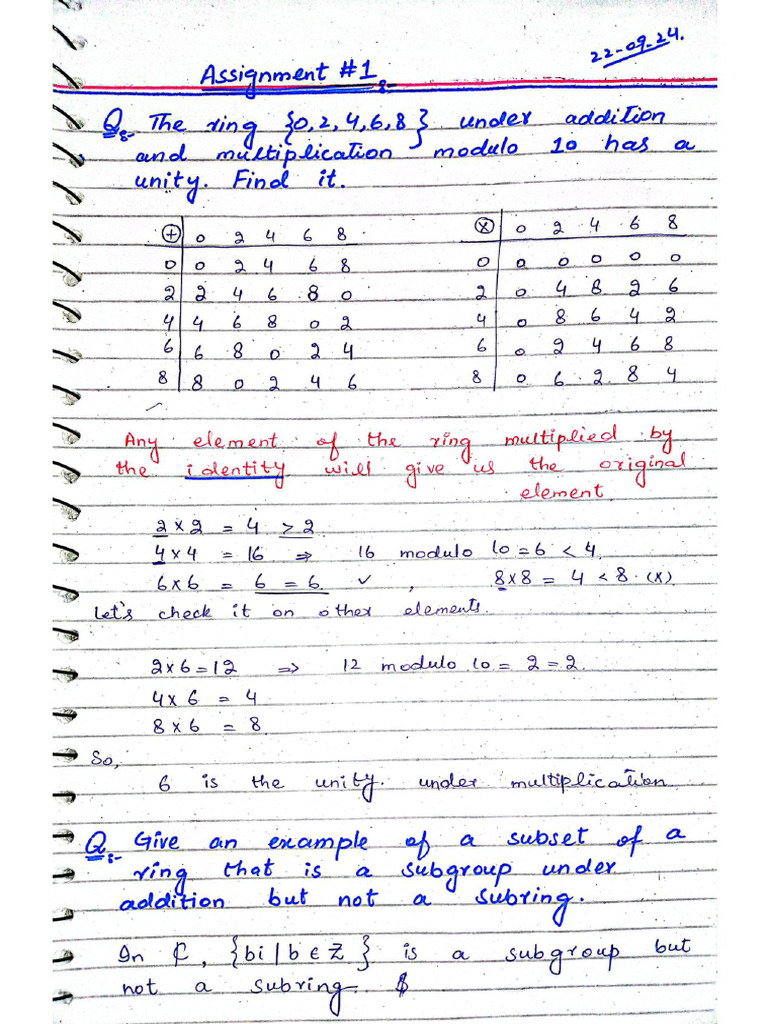 22-09-24.
Assignment #1:-
Q:- The ring {0,2,4,6,8} under addition
and multiplication modulo 10 has a
unity. Find it.
⊕ 0 2 4 6 8
0 0 2 4 6 8
2 2 4 6 8 0
4 4 6 8 0 2
6 6 8 0 2 4
8 8 0 2 4 6
⊗ 0 2 4 6 8
0 0 0 0 0 0
2 0 4 8 2 6
4 0 8 6 4 2
6 0 2 4 6 8
8 0 6 2 8 4
Any element of the ring multiplied by
the identity will give us the original
element
2 × 2 = 4 > 2
4 × 4 = 16 ⇒ 16 modulo 10 = 6 < 4
6 × 6 = 6 = 6. ✓ , 8 × 8 = 4 < 8. (x)
Let's check it on other elements.
2 × 6 = 12 ⇒ 12 modulo 10 = 2 = 2.
4 × 6 = 4
8 × 6 = 8
So,
6 is the unity under multiplication
Q:- Give an example of a subset of a
ring that is a subgroup under
addition but not a subring.
In ₵, {bi | b ∈ Z} is a subgroup but
not a subring.